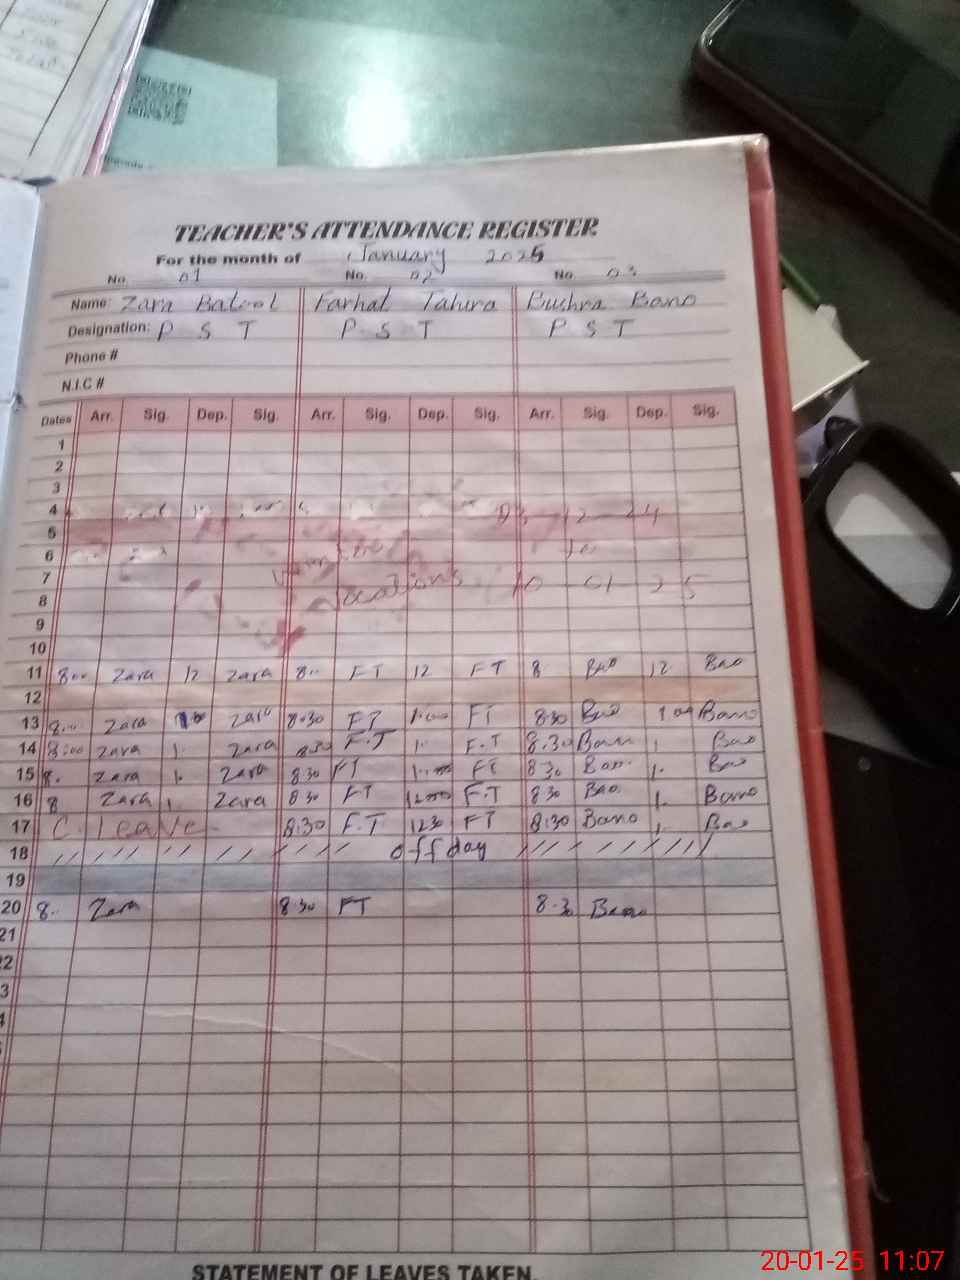 TEACHER'S ATTENDANCE REGISTER
For the month of January 2025
No. 01 No. 02 No. 03
Name: Zara Batool Farhat Tahira Bushra Bano
Designation: P S T P S T P S T
Phone #
N.I.C #
Dates Arr. Sig. Dep. Sig. Arr. Sig. Dep. Sig. Arr. Sig. Dep. Sig.
1
2
3
4 12 - 24
5
6 to
7 vacations 10 - 01 - 25
8
9
10
11 8.. Zara 12 Zara 8.. FT 12 FT 8 Bao 12 Bao
12
13 8.. Zara Zara 8.30 FT 1.00 FT 8.30 Bao 1.00 Bano
14 8:00 Zara 1. Zara 8.30 F.T 1. F.T 8.30 Bano 1. Bao
15 8. Zara 1. Zara 8.30 FT 1. FT 8.30 Bano 1. Bao
16 8 Zara 1. Zara 8.30 FT F.T 8.30 Bao 1. Bano
17 C. leave 8.30 F.T 1230 FT 8.30 Bano 1. Bao
18 off day
19
20 8.. Zara 8.30 FT 8.30 Bano
21
STATEMENT OF LEAVES TAKEN.
20-01-25 11:07